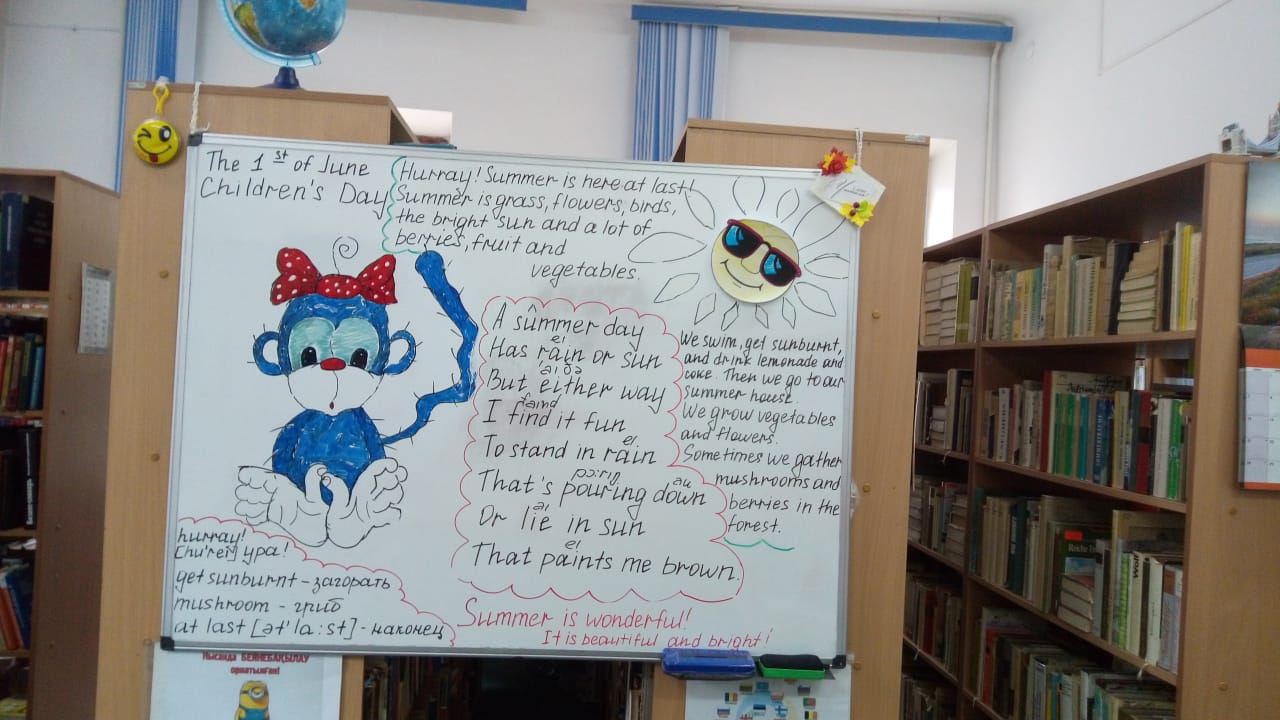 The 1st of June
Children's Day
Hurray! Summer is here at last!
Summer is grass, flowers, birds,
the bright sun and a lot of
berries, fruit and
vegetables.
A summer day
ei
Has rain or sun
aiðə
But either way
faind
I find it fun
ei
To stand in rain
pɔ:riŋ au
That's pouring down
ai
Or lie in sun
ei
That paints me brown.
We swim, get sunburnt,
and drink lemonade and
coke. Then we go to our
summer house.
We grow vegetables
and flowers.
Sometimes we gather
mushrooms and
berries in the
forest.
hurray!
[hu'rei] ура!
get sunburnt – загорать
mushroom – гриб
at last [ət'la:st] - наконец
Summer is wonderful!
It is beautiful and bright!
Нысанда БЕЙНЕБАҚЫЛАУ
орнатылған!